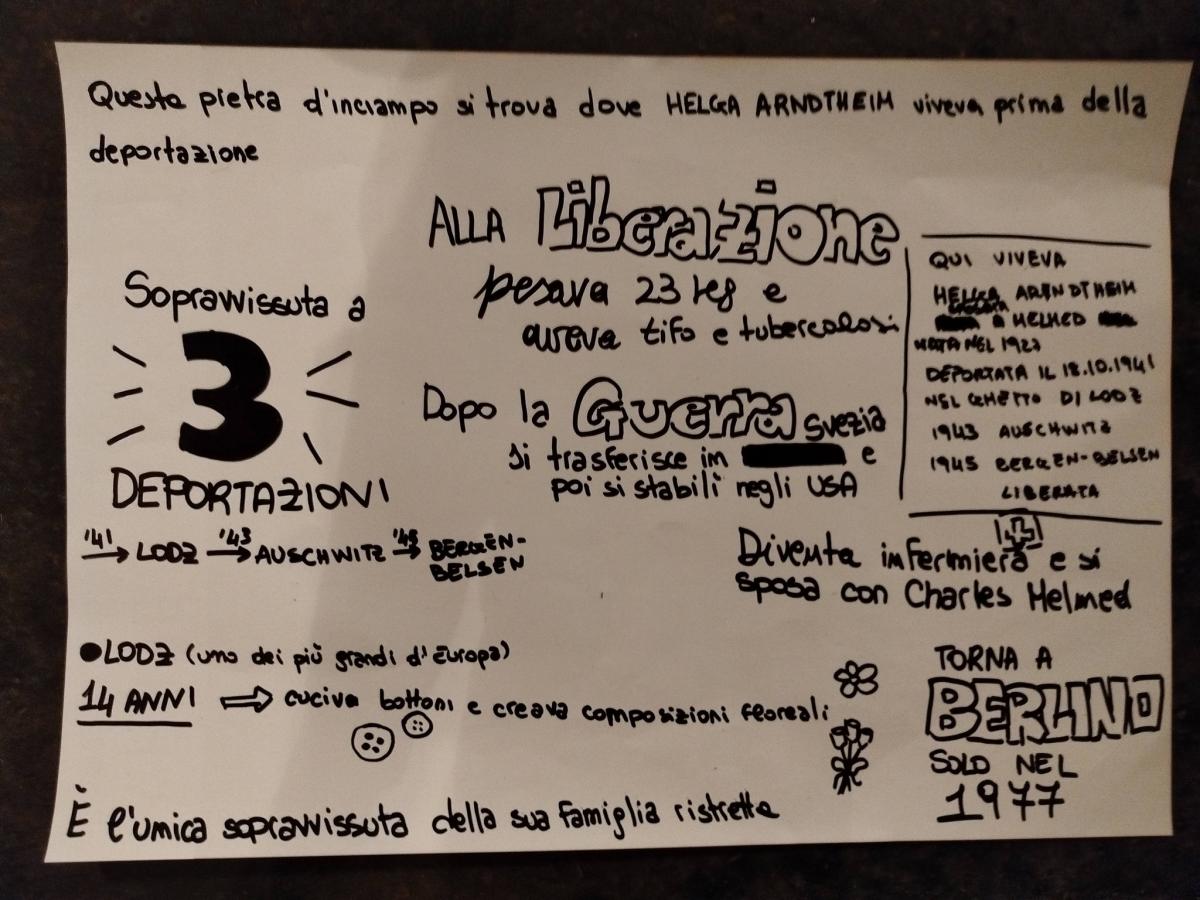 Questa pietra d'inciampo si trova dove HELGA ARNDTHEIM viveva prima della
deportazione
ALLA Liberazione
pesava 23 kg e
aveva tifo e tubercolosi
Sopravvissuta a
3
DEPORTAZIONI
'41 LODZ '43 AUSCHWITZ '45 BERGEN-
BELSEN
Dopo la Guerra
si trasferisce in svezia e
poi si stabilì negli USA
QUI VIVEVA
HELGA ARNDTHEIM
HELMED
NATA NEL
DEPORTATA IL 18.10.1941
NEL GHETTO DI LODZ
1943 AUSCHWITZ
1945 BERGEN-BELSEN
LIBERATA
Diventa infermiera e si
sposa con Charles Helmed
LODZ (uno dei più grandi d'Europa)
14 ANNI ⇨ cuciva bottoni e creava composizioni floreali
TORNA A
BERLINO
SOLO NEL
1977
È l'unica sopravvissuta della sua famiglia ristretta